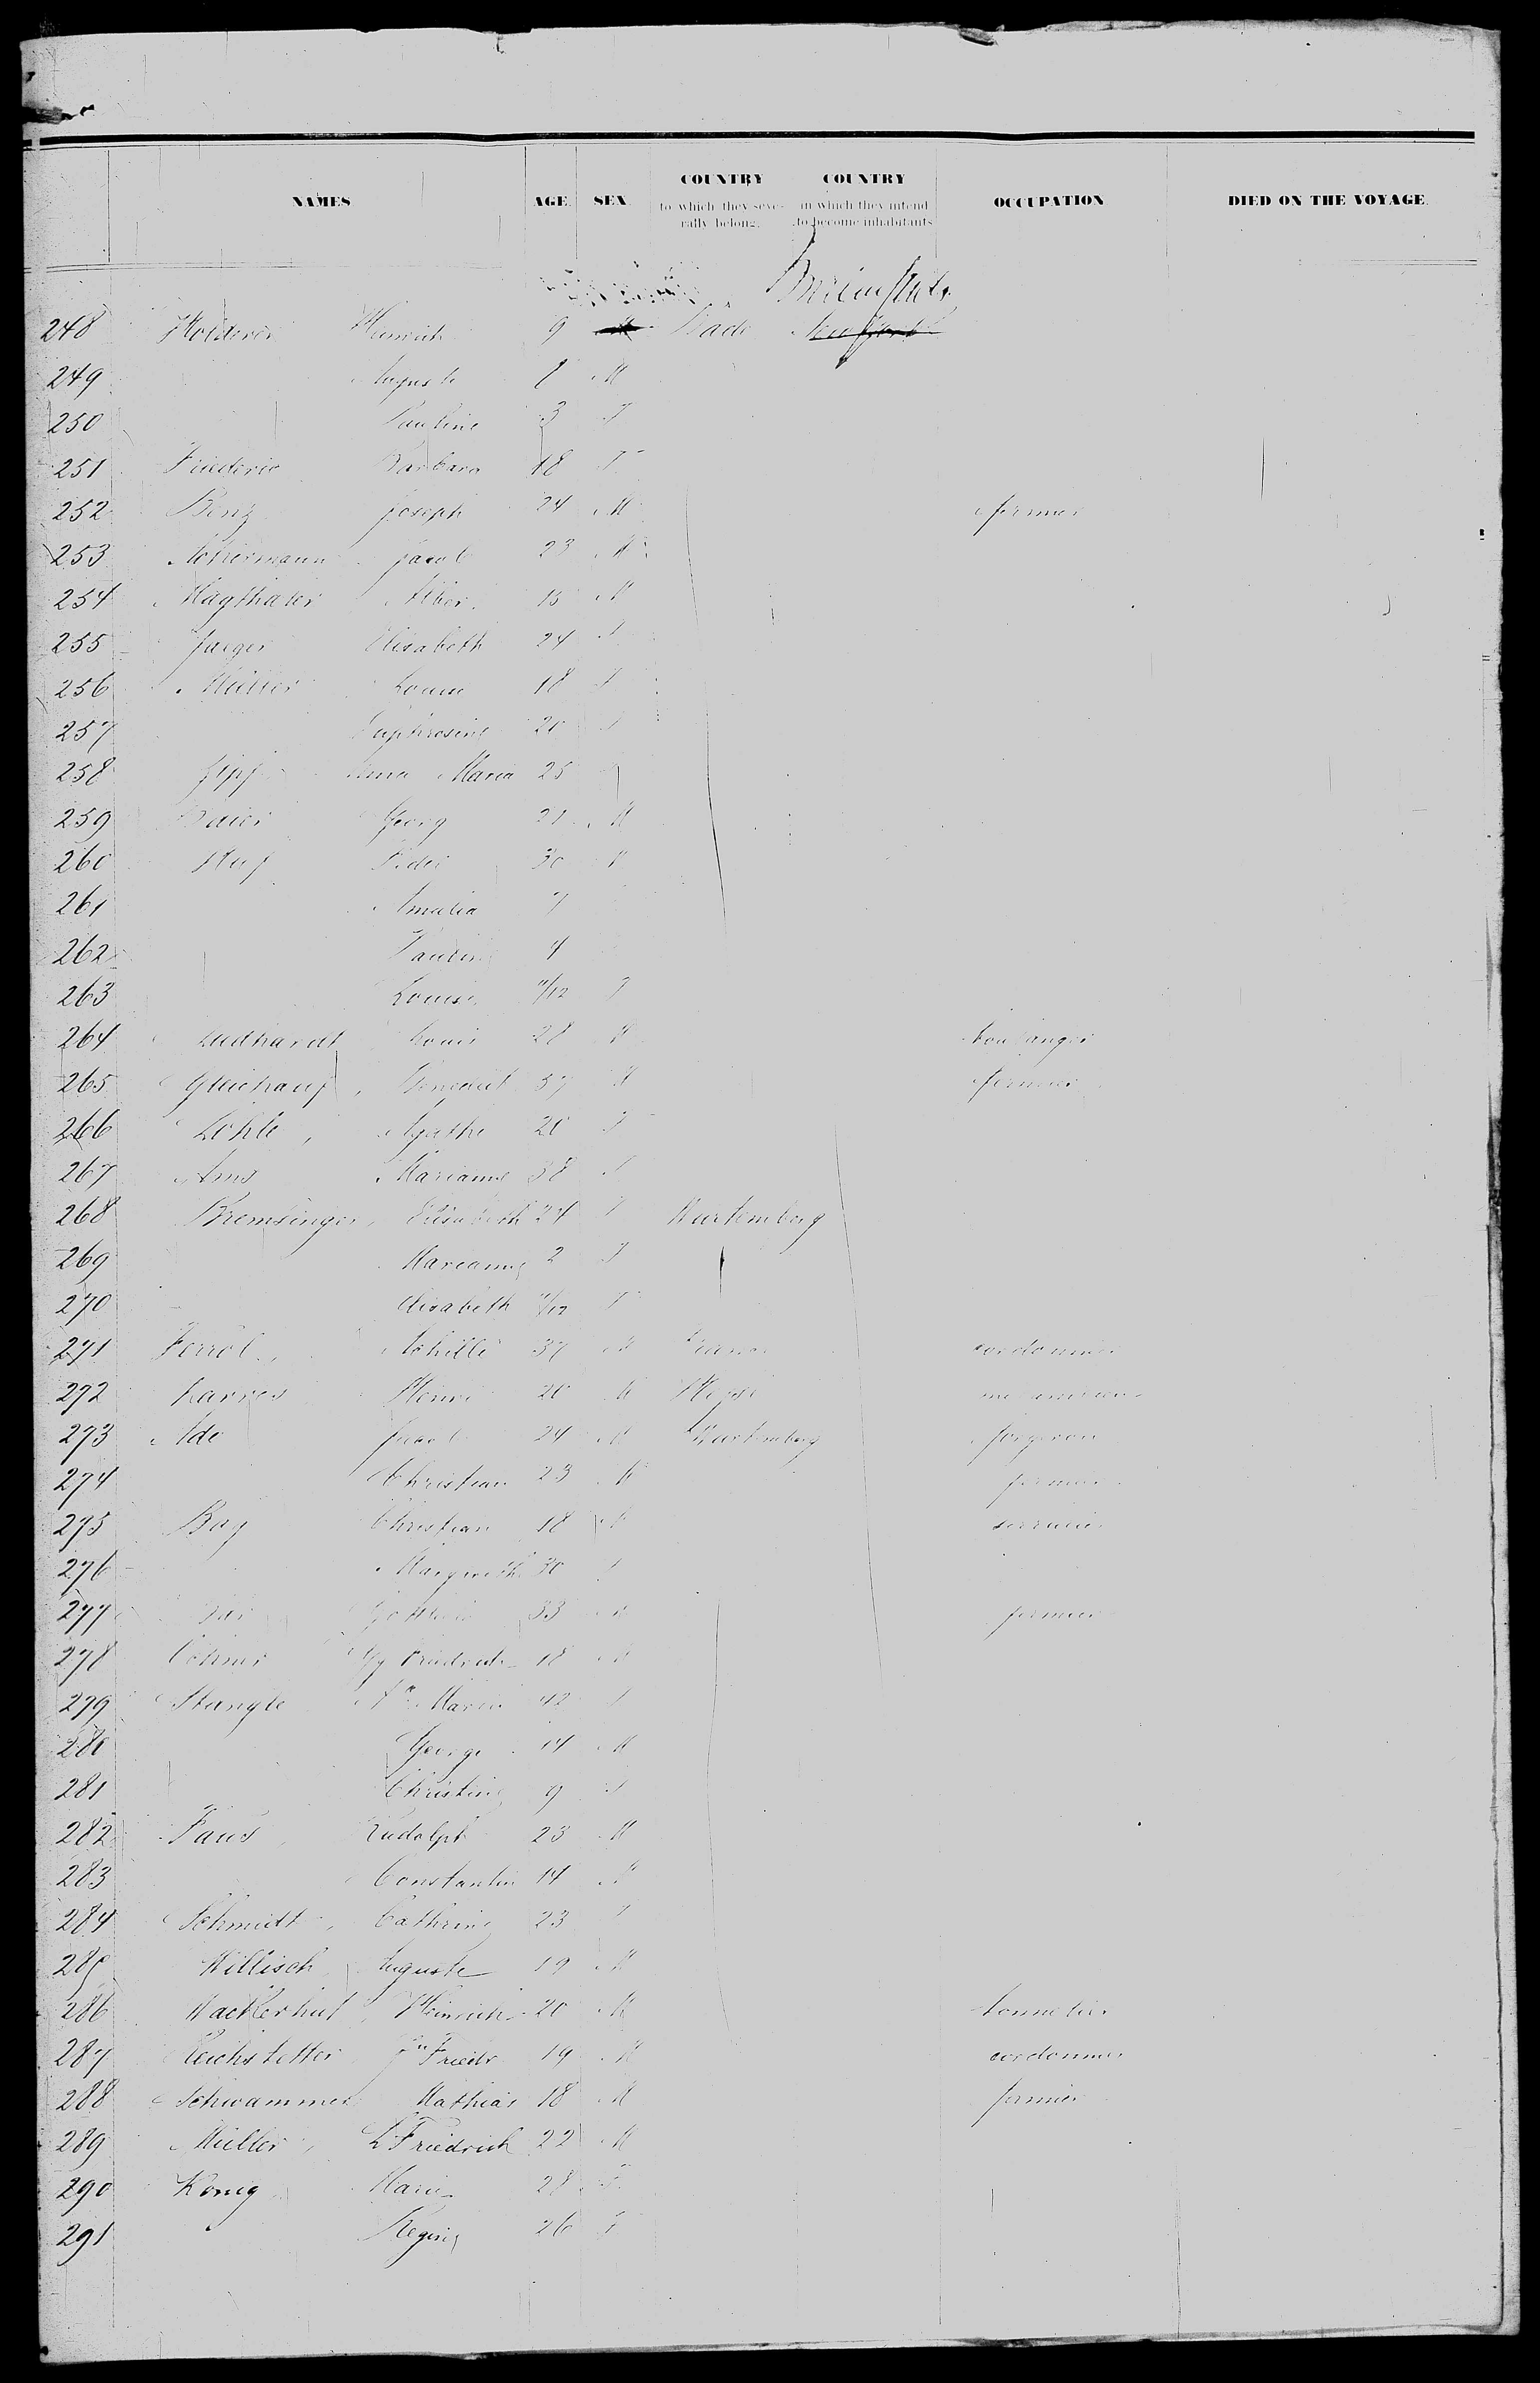 NAMES AGE SEX COUNTRY to which they seve- rally belong. COUNTRY in which they intend to become inhabitants OCCUPATION DIED ON THE VOYAGE
248 Heinrich 9 Bade New York
249 Auguste 8 M
250 Pauline 3 F
251 Friederic Barbara 18 F
252 Benz Joseph 24 M fermier
253 Ackermann Jacob 23 M
254 Magthaler Alber. 15 M
255 Jaeger Elisabeth 24 F
256 Müller Louise 18 F
257 Euphrosine 20 F
258 Anna Maria 25
259 Baier Georg 21 M
260 Hug Fidel 30 M
261 Amalia 7
262 Pauline 4
263 Louise 11/12 F
264 Ludhardt Louis 28 M boulanger
265 Gleichauf Benedict 37 M fermier
266 Lohle, Agathe 20 F
267 Ams Marianne 38 F
268 Bremsinger, Elisabeth 24 F Wurtemberg
269 Marianne 2 F
270 Elisabeth /12 F
271 Ferrol, Achille 37 M France cordonnier
272 Karres Henri 20 M mecanicien
273 Ade Jacob 24 M Wurtemberg forgeron
274 Christian 23 M fermier
275 Bay Christian 18 M serrurier
276 Margareth 30 F
277 Gottlieb 33 M fermier
278 Friedrich 18 M
279 Stangle Maria 42 F
280 George 14 M
281 Christine 9 F
282 Faus, Rudolph 23 M
283 Constantin 14 M
284 Schmidt, Cathrine 23 F
285 Willisch Auguste 19 M
286 Wackerhut, Heinrich 20 M tonnelier
287 Reichstetter Jn Friedr 19 M cordonnier
288 Schwammer Mathias 18 M fermier
289 Müller, L Friedrich 22 M
290 König Marie 28 F
291 Regine 26 F